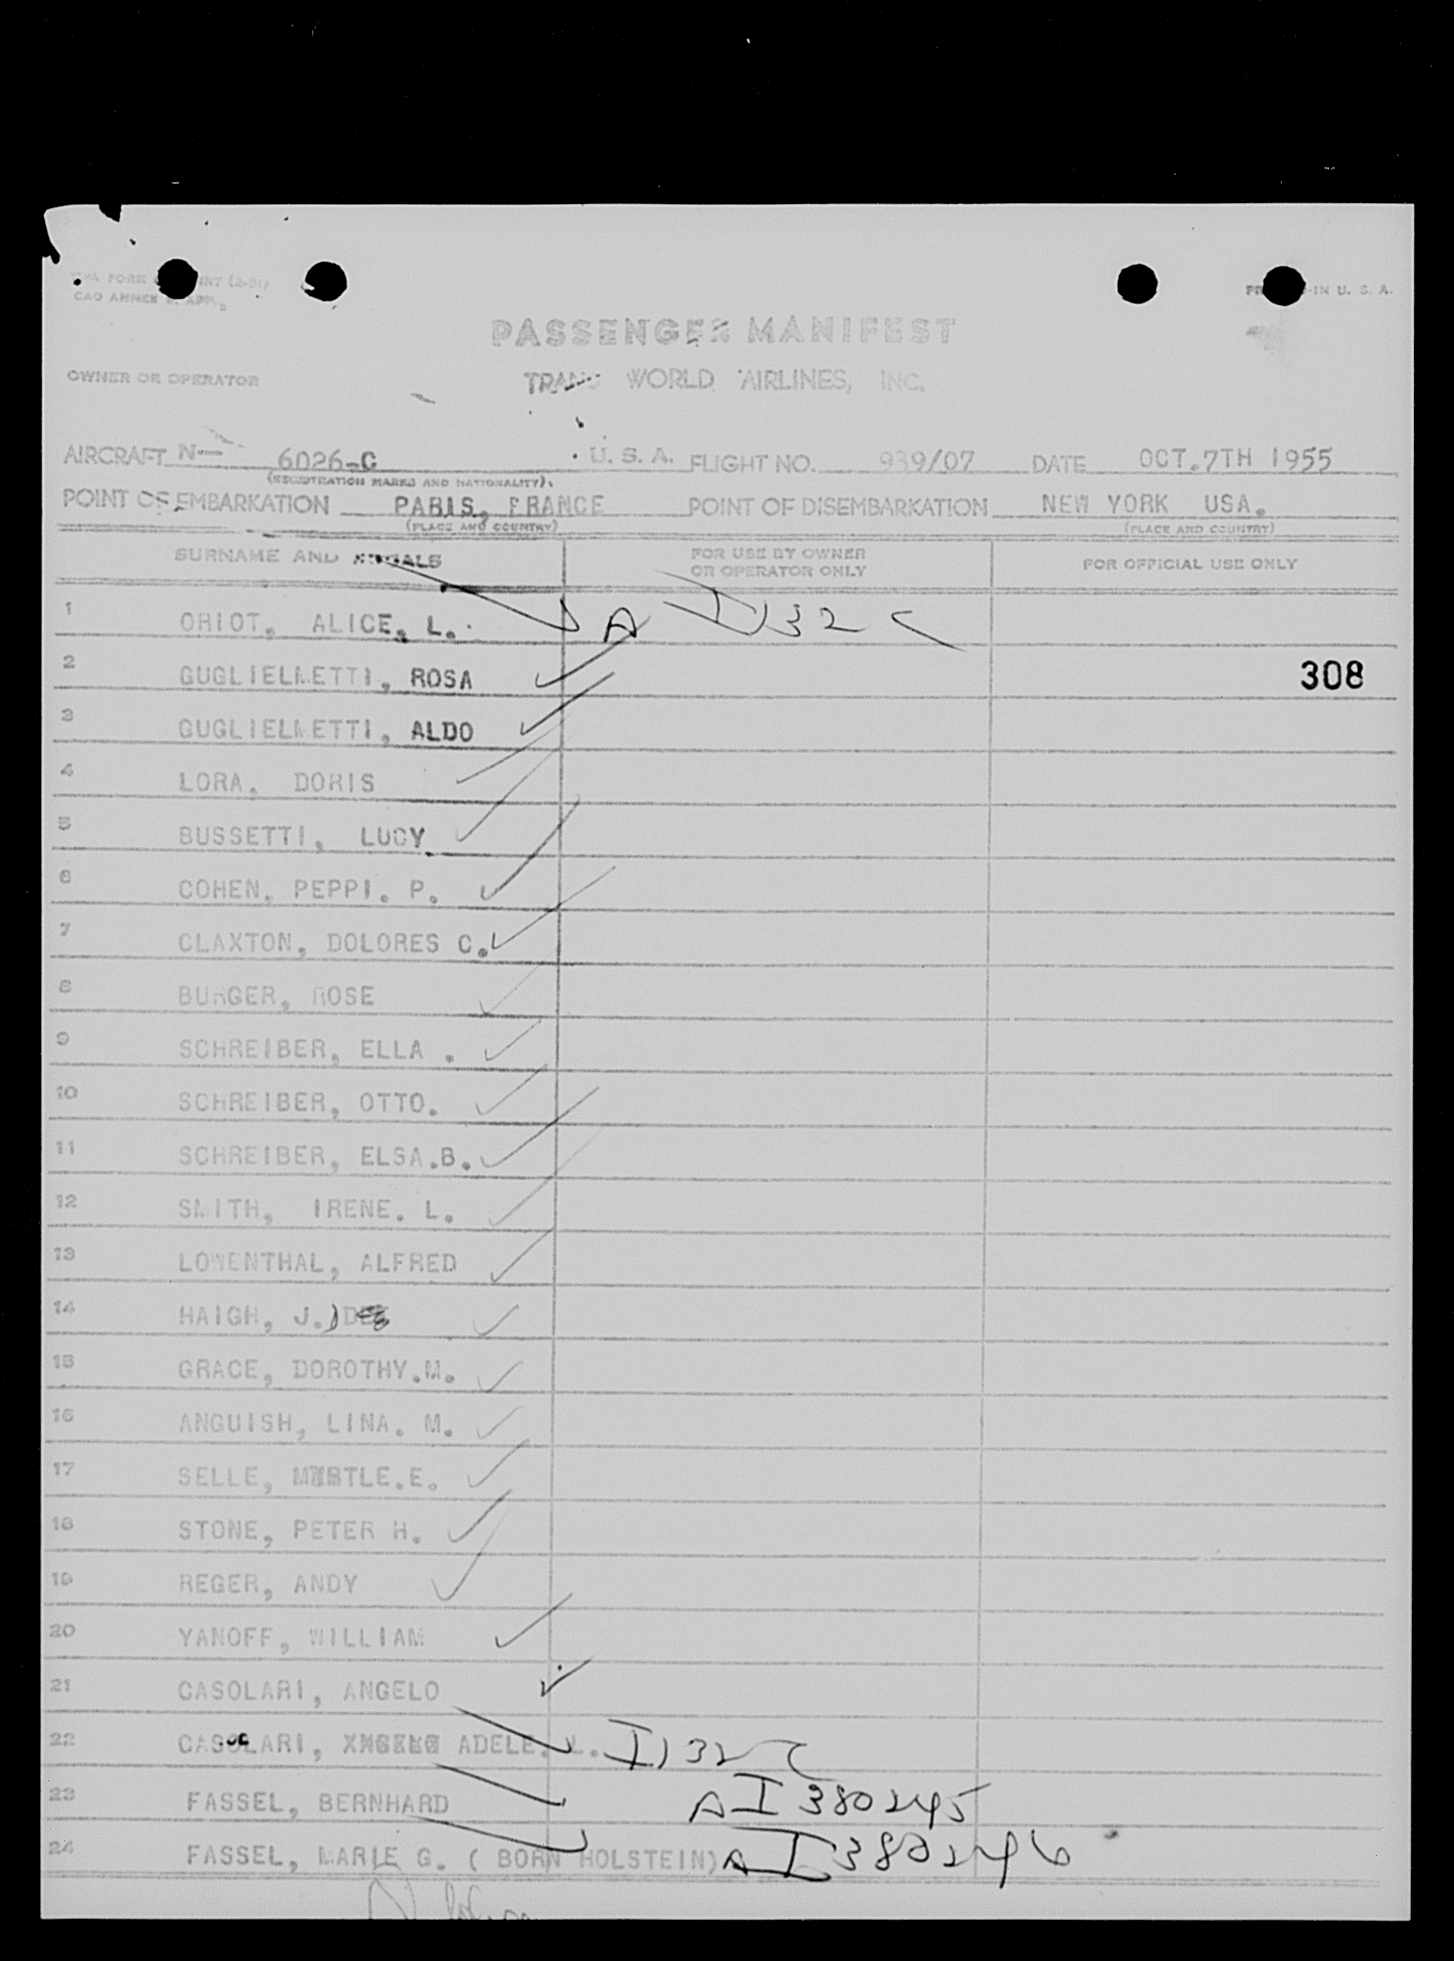 CAO ANNEX
IN U. S. A.
PASSENGER MANIFEST
OWNER OR OPERATOR TRANS WORLD AIRLINES, INC.
AIRCRAFT N— 6026-C U. S. A. FLIGHT NO. 939/07 DATE OCT.7TH 1955
(REGISTRATION MARKS AND NATIONALITY)
POINT OF EMBARKATION PARIS, FRANCE POINT OF DISEMBARKATION NEW YORK USA.
(PLACE AND COUNTRY) (PLACE AND COUNTRY)
SURNAME AND FOR USE BY OWNER OR OPERATOR ONLY FOR OFFICIAL USE ONLY
1 ORIOT, ALICE, L. A
2 GUGLIELMETTI, ROSA 308
3 GUGLIELMETTI, ALDO
4 LORA. DORIS
5 BUSSETTI, LUCY
6 COHEN. PEPPI. P.
7 CLAXTON, DOLORES C.
8 BURGER, ROSE
9 SCHREIBER, ELLA .
10 SCHREIBER, OTTO.
11 SCHREIBER, ELSA.B.
12 SMITH, IRENE. L.
13 LOWENTHAL, ALFRED
14 HAIGH, J.
15 GRACE, DOROTHY.M.
16 ANGUISH, LINA. M.
17 SELLE, MYRTLE.E.
18 STONE, PETER H.
19 REGER, ANDY
20 YANOFF, WILLIAM
21 CASOLARI, ANGELO
22 CASOLARI, ADELE. L.
23 FASSEL, BERNHARD A I 380245
24 FASSEL, MARIE G. ( BORN HOLSTEIN) A I 380246